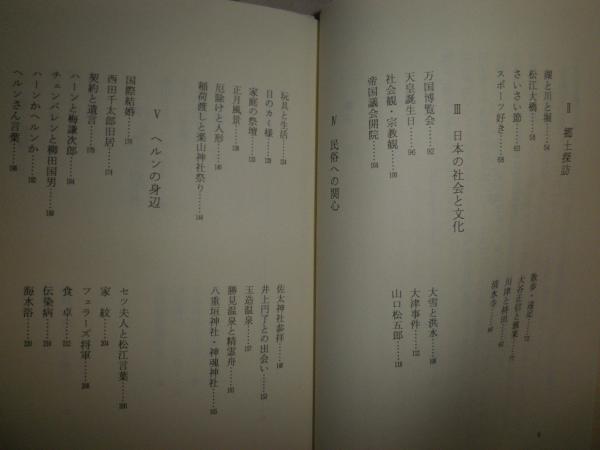 Ⅱ 郷土探訪
湖と川と堀……54
松江大橋……58
さいさい節……63
スポーツ好き……68
散歩・遠足……72
大谷正信と俳業
川津と持田
清水寺
Ⅲ 日本の社会と文化
万国博覧会……92
天皇誕生日……96
社会観・宗教観……100
帝国議会開院
大雪と洪水
大津事件
山口松五郎
Ⅳ 民俗への関心
玩具と生活……124
目のカミ様
家庭の祭壇
正月風景
厄除けと人形
稲荷渡しと楽山神社祭り
佐太神社参拝
井上円了との出会い
玉造温泉
勝見温泉と精霊舟
八重垣神社・神魂神社
Ⅴ ヘルンの身辺
国際結婚……170
西田千太郎旧居……174
契約と遺言
ハーンと梅謙次郎
チェンバレンと柳田国男
ハーンかヘルンか
ヘルンさん言葉
セツ夫人と松江言葉……200
家紋……204
フェラーズ将軍
食卓
伝染病
海水浴